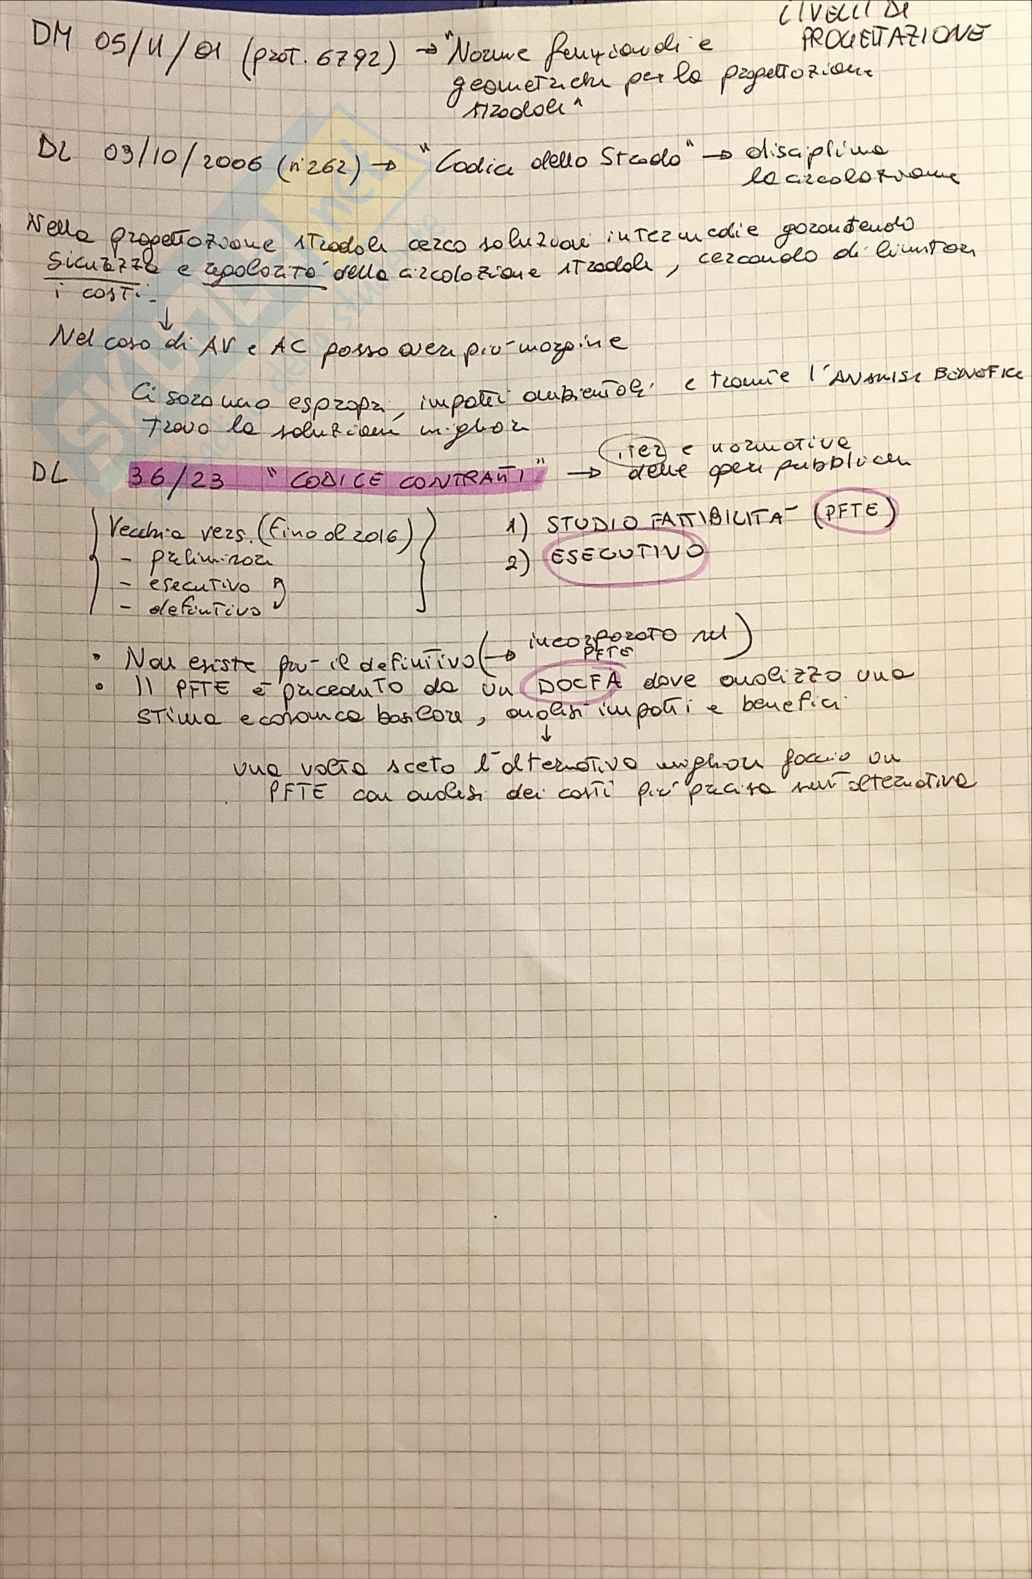 LIVELLI DI
PROGETTAZIONE
DM 05/11/01 (prot. 6792) → "Norme funzionali e
geometriche per la progettazione
stradale"
DL 03/10/2006 (n°262) → "Codice della Strada" → disciplina
la circolazione
Nella progettazione stradale cerco soluzioni intermedie garantendo
sicurezza e regolarità della circolazione stradale, cercando di limitare
i costi.
↓
Nel caso di AV e AC posso avere più margine
Ci saranno espropri, impatti ambientali e tramite l'ANALISI BENEFICI
trovo la soluzione migliore
DL 36/23 "CODICE CONTRATTI" → iter e normativa
delle opere pubbliche
Vecchia vers. (fino al 2016)
- preliminare
- esecutivo
- definitivo
1) STUDIO FATTIBILITA' (PFTE)
2) ESECUTIVO
• Non esiste più il definitivo (→ incorporato nel
PFTE)
• Il PFTE è preceduto da un DOCFA dove analizzo una
stima economica basilare, analisi impatti e benefici
↓
una volta sceto l'alternativa migliore faccio un
PFTE con analisi dei costi più precisa sull'alternativa